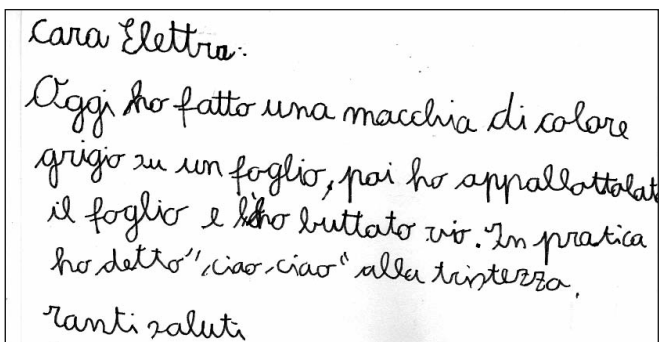 Cara Elettra.
Oggi ho fatto una macchia di colore
grigio su un foglio, poi ho appallottolat
il foglio e l'ho buttato via. In pratica
ho detto", ciao, ciao" alla tristezza.
Tanti saluti